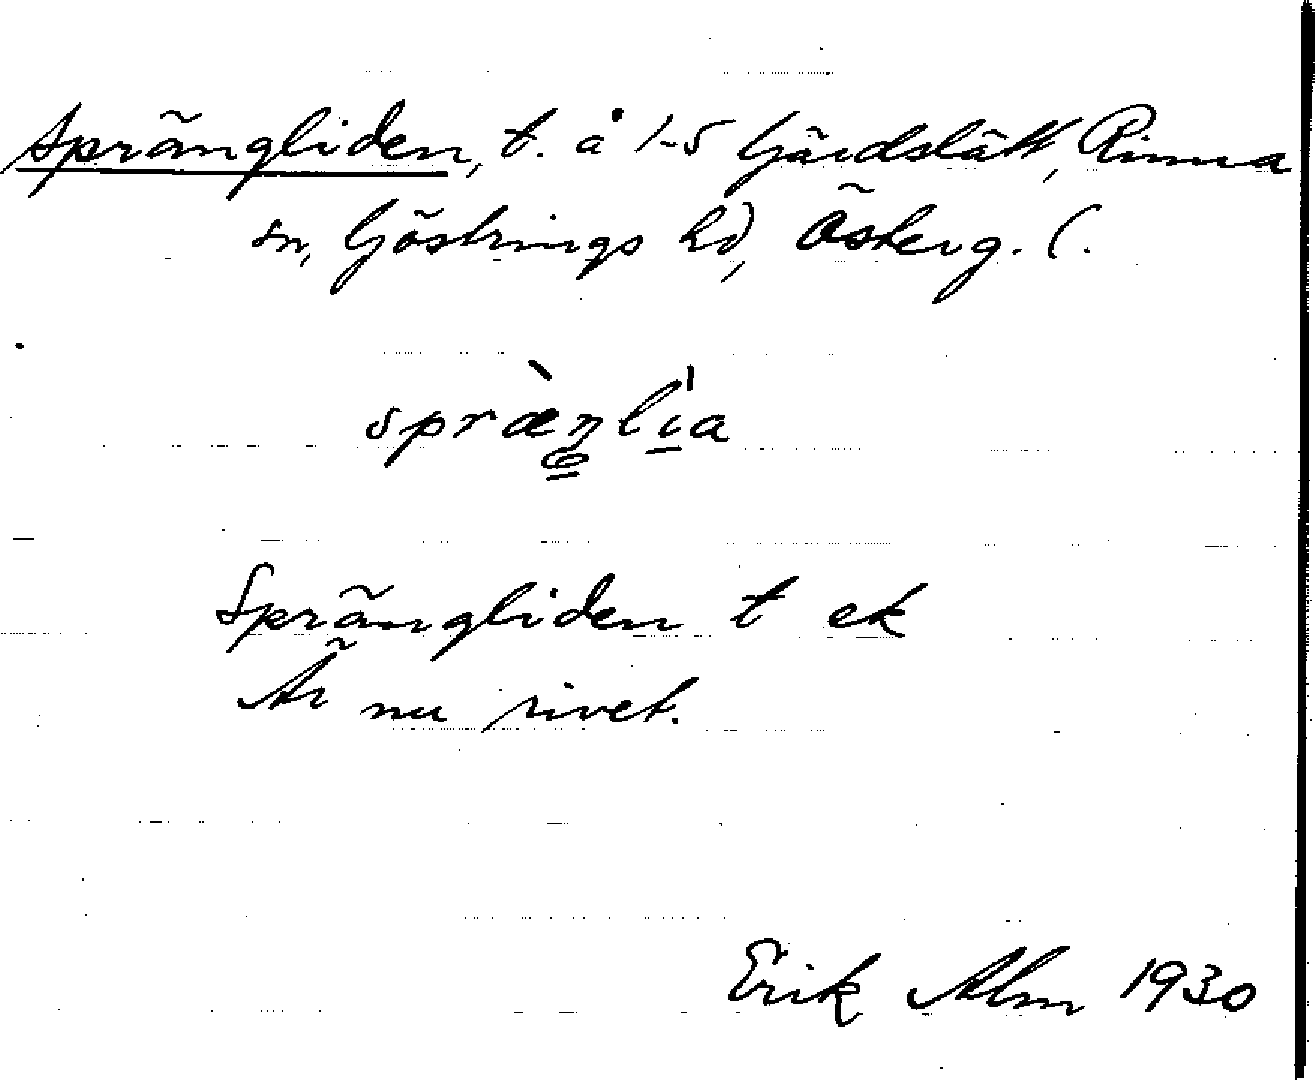 Sprängliden, t. å 1-5 Gärdslätt, Rinna
sn, Göstrings hd, Österg. l.
spræ̀ŋlı̍a
Sprängliden t ek
Är nu rivet.
Erik Alm 1930